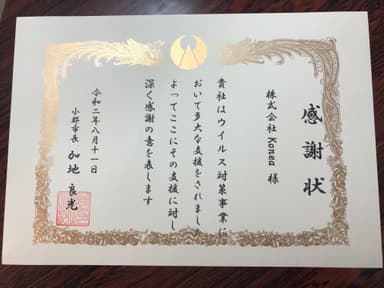 感謝状
株式会社Kanea 様
貴社はウイルス対策事業に
おいて多大な支援をされました
よってここにその支援に対し
深く感謝の意を表します
令和二年八月十一日
小郡市長 加地 良光